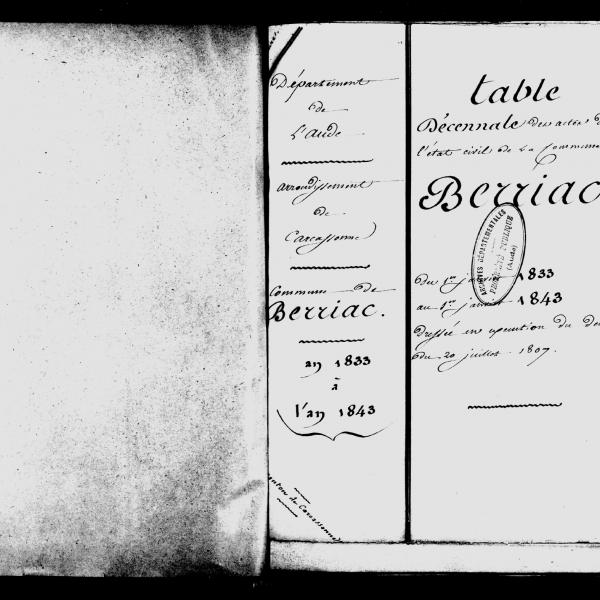 Département
de
L'Aude
arrondissement
de
Carcassonne
Commune de
Berriac.
an 1833
à
l'an 1843
Canton de Carcassonne
table
Décennale des actes d
l'état civil de La Commune
Berriac
ARCHIVES DÉPARTEMENTALES
PROPRIÉTÉ PUBLIQUE
(Aude)
du 1er janvier 1833
au 1er janvier 1843
Dressée en execution du de
du 20 juillet 1807.